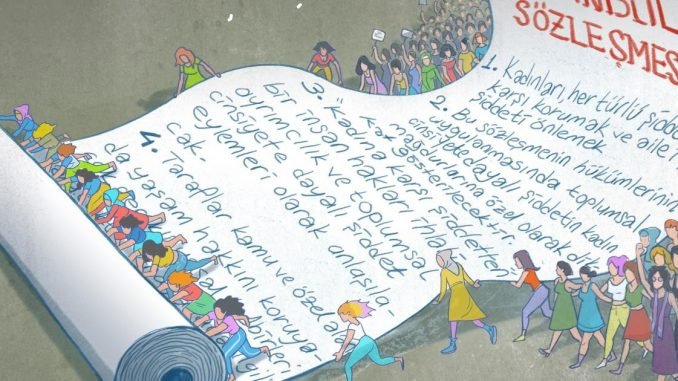 SÖZLEŞMES
1. Kadınları, her türlü şidde
karşı korumak ve aile i
şiddeti önlemek
2. Bu sözleşmenin hükümlerinin
uygulanmasında toplumsal
cinsiyete dayalı şiddetin kadın
mağdurlarına özel olarak dik
kat gösterilecektir.
3. "Kadına karşı şiddetten
bir insan hakları ihla
ayrımcılık ve toplumsal
cinsiyete dayalı şiddet
eylemleri olarak anlaşıla-
cak.
4. Taraflar kamu ve özel a
da yaşam hakkını koruya-